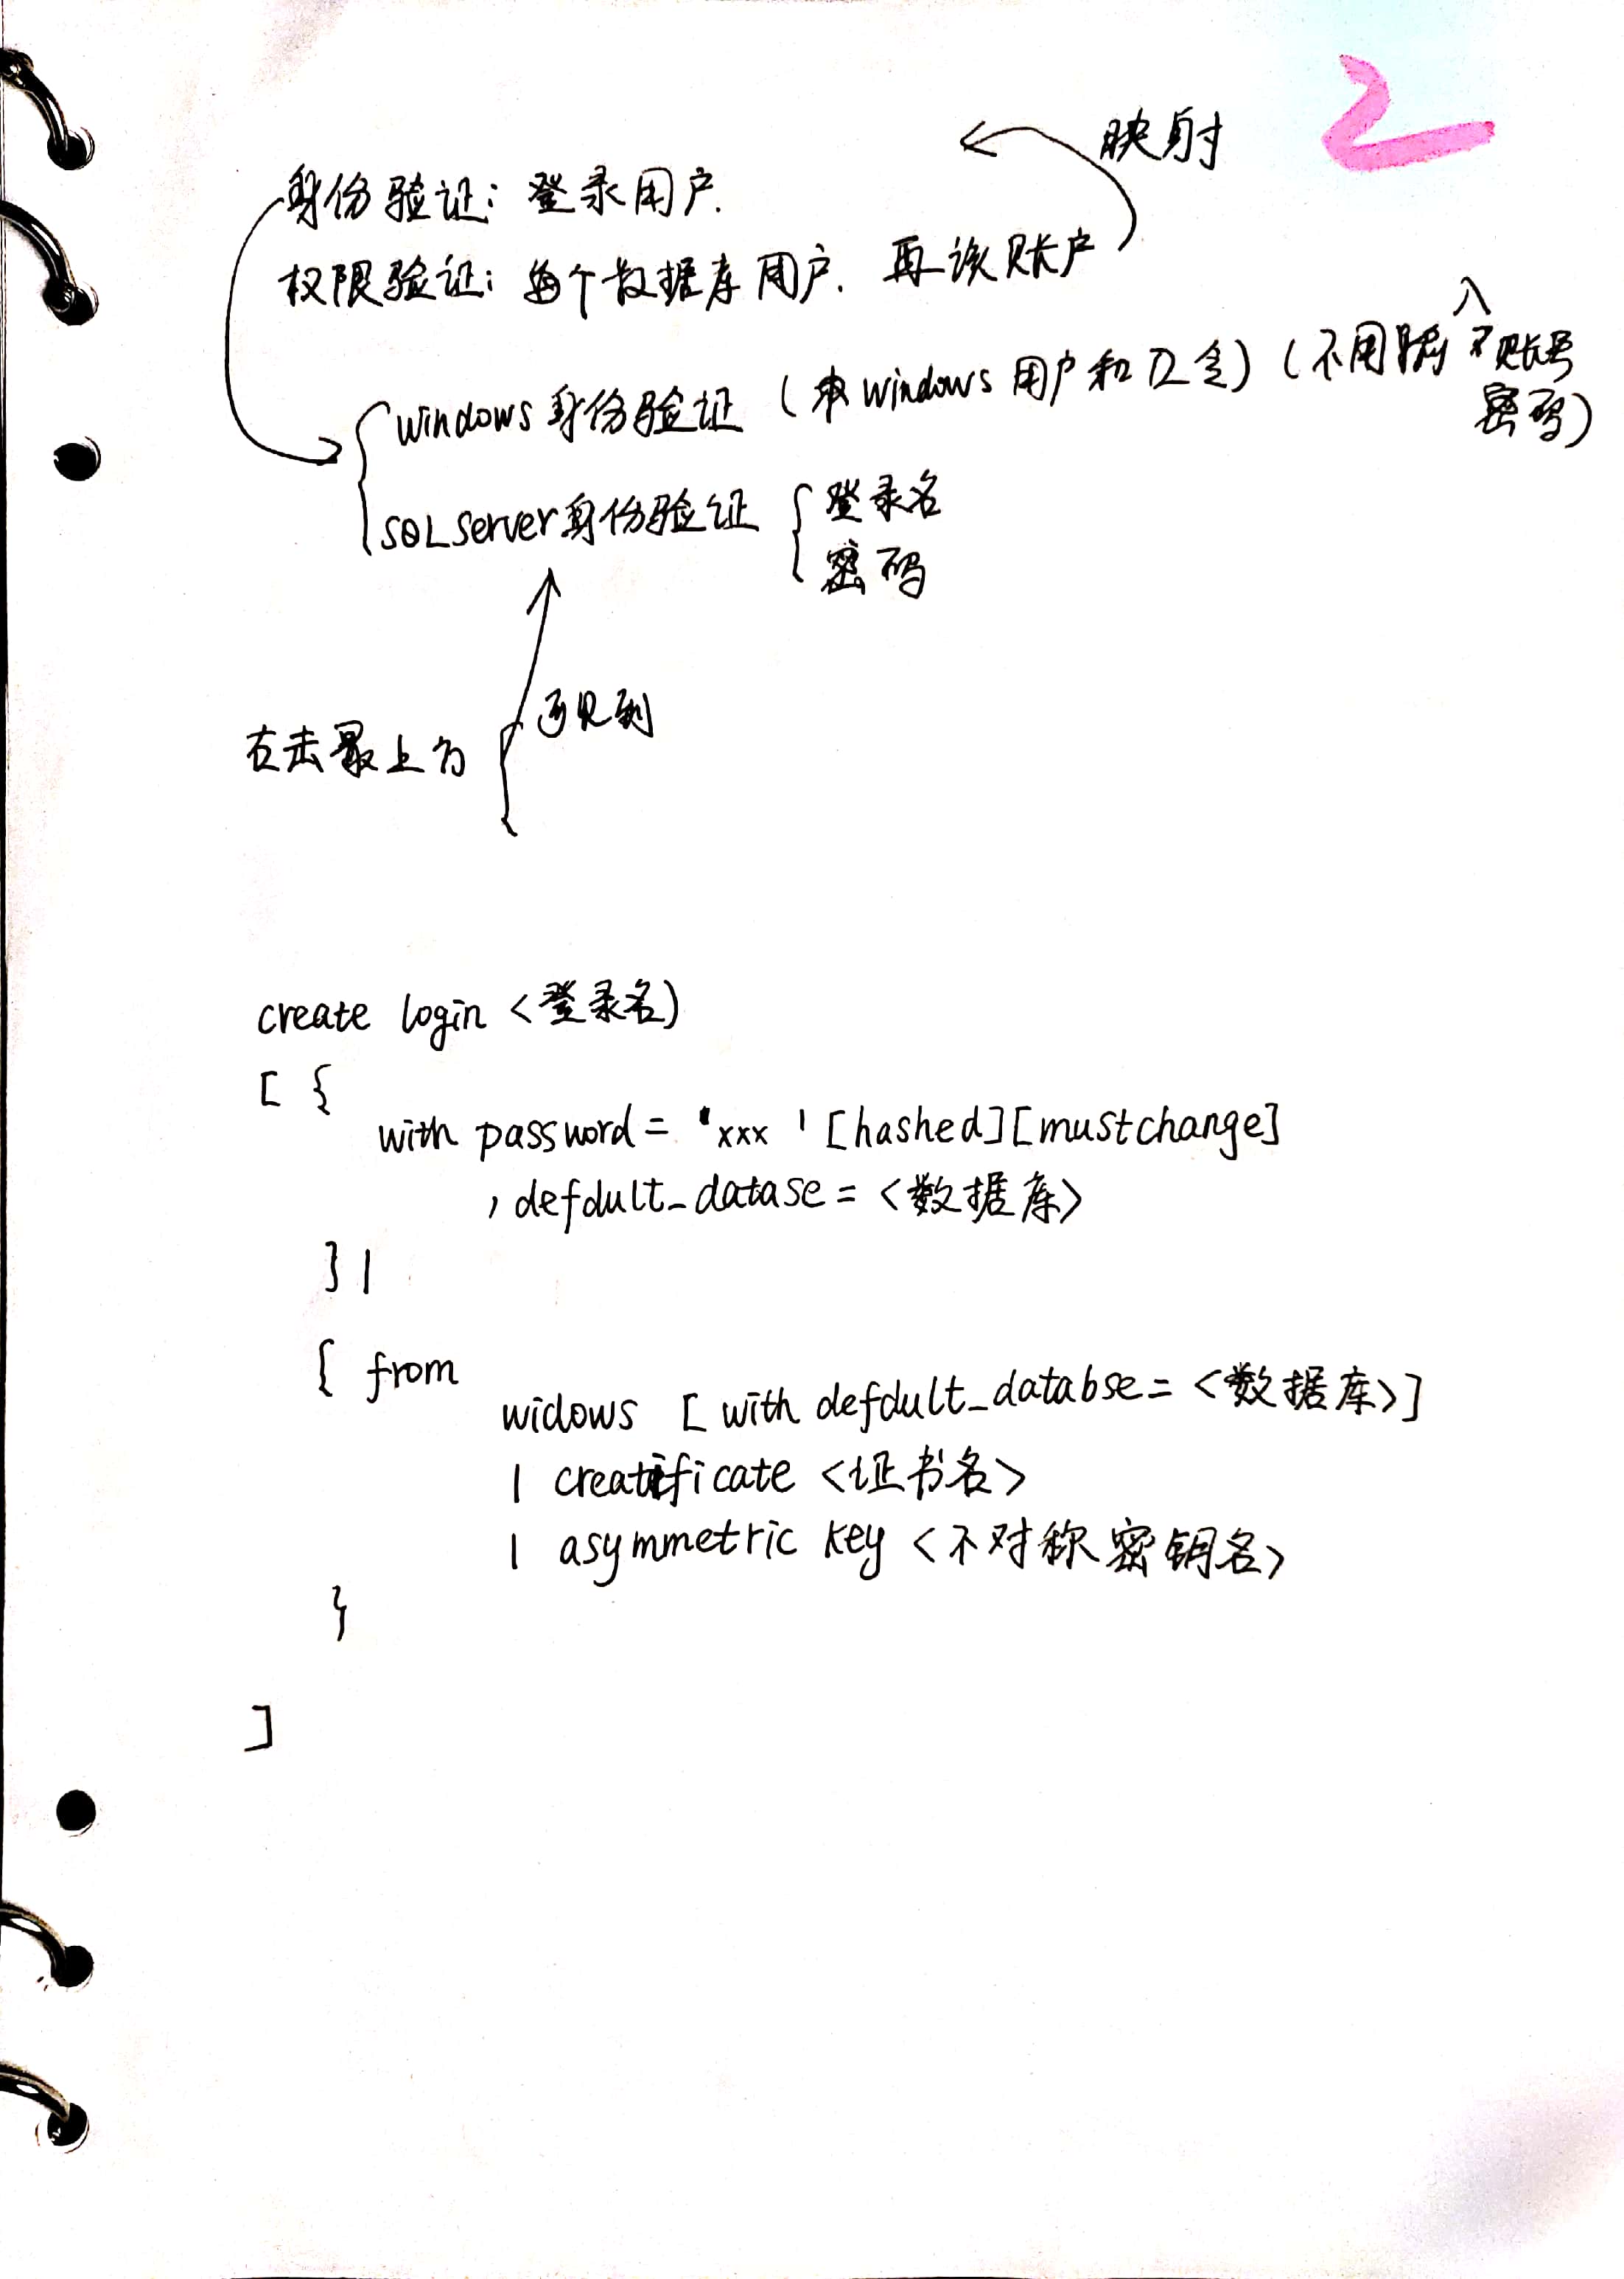 2
映射
身份验证：登录用户.
权限验证：每个数据库用户. 再该账户
windows身份验证 (本windows用户和口令) (不用输入账号
密码)
SQL Server身份验证 { 登录名
密码
右击最上方
create login <登录名)
[ {
with password = 'xxx' [hashed][mustchange]
, defdult_datase = <数据库>
} |
{ from
widows [ with defdult_databse = <数据库>]
| creatificate <证书名>
| asymmetric key <不对称密钥名>
}
]